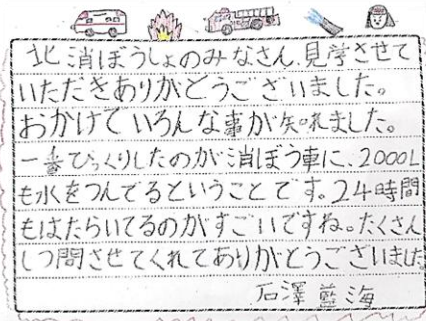 北消ぼうしょのみなさん、見学させて
いただきありがとうございました。
おかげでいろんな事が知れました。
一番びっくりしたのが消ぼう車に、2000L
も水をつんでるということです。24時間
もはたらいてるのがすごいですね。たくさん
しつ問させてくれてありがとうございました。
石澤 藍海